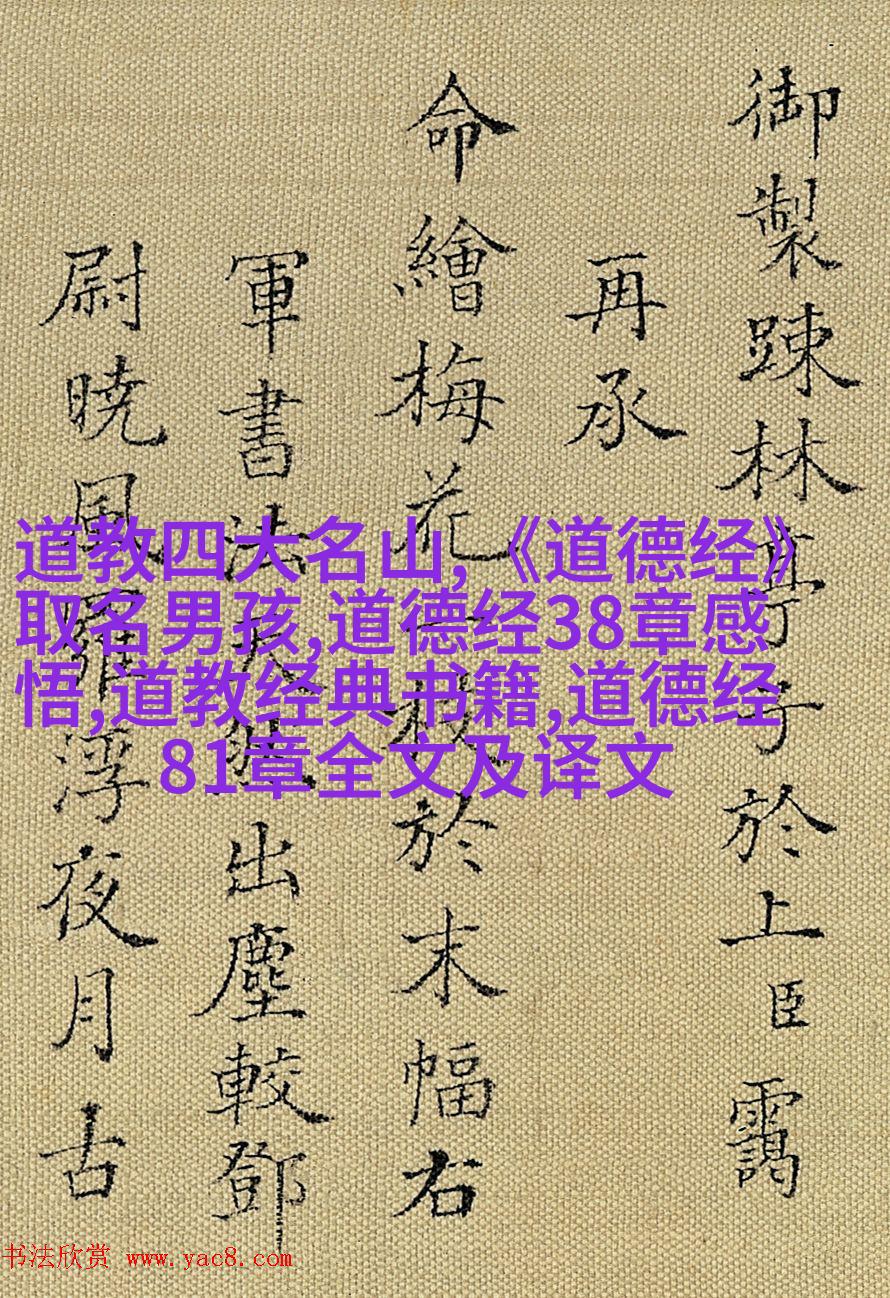 御製踈林亭子於上臣靄
再承
命繪梅花一枝於末幅右
軍書法出塵較鄧
尉暁風羅浮夜月古
道教四大名山,《道德经》
取名男孩,道德经38章感
悟,道教经典书籍,道德经
81章全文及译文
书法欣赏 www.yac8.com